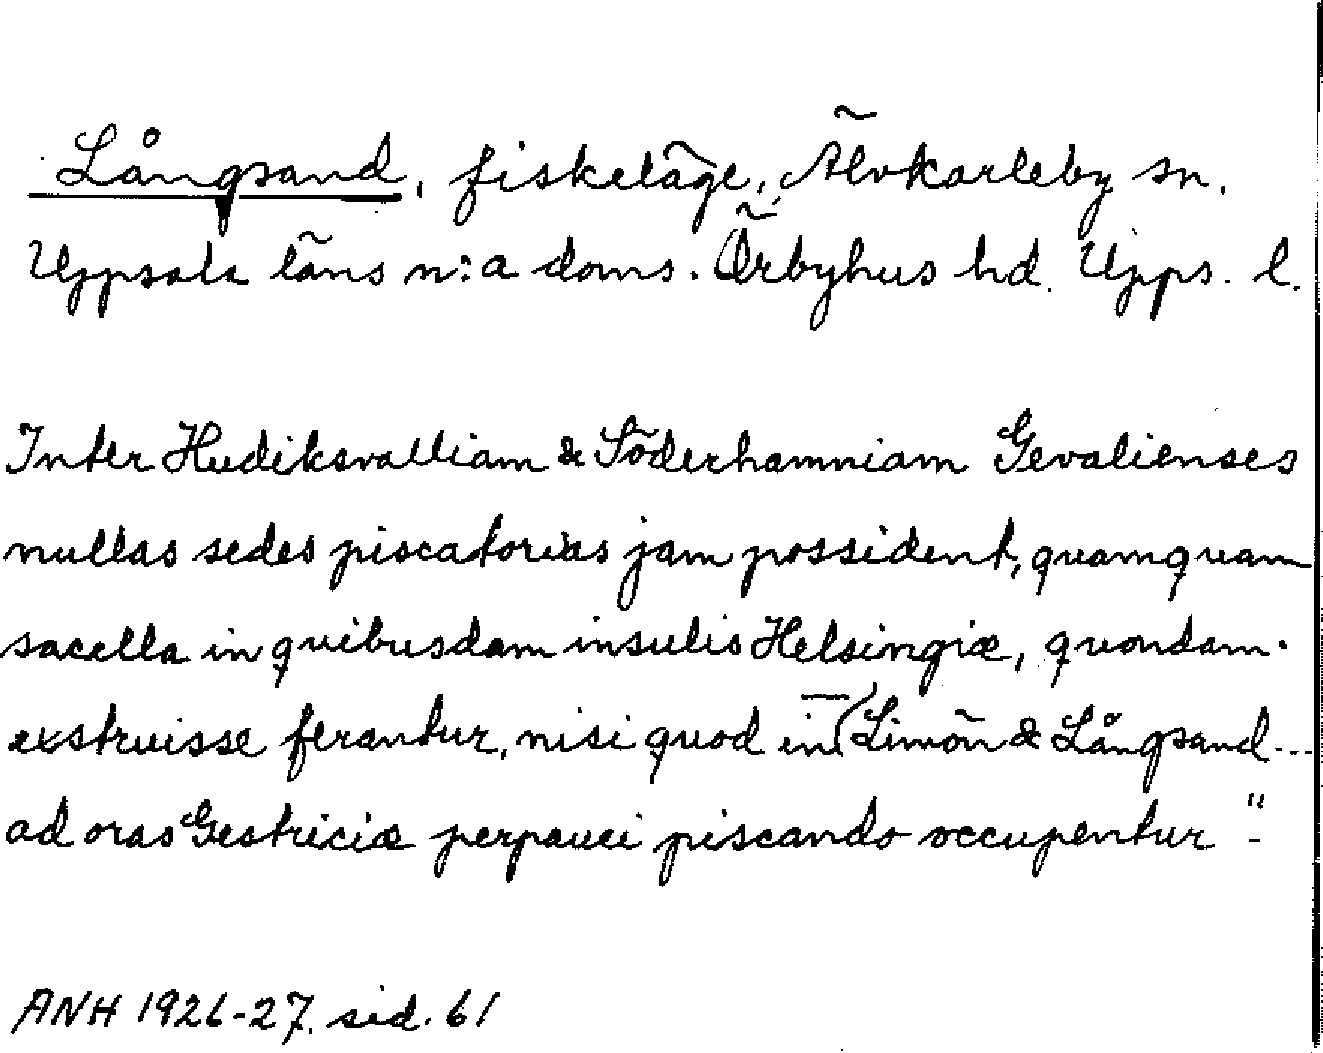 Långsand, fiskeläge, Älvkarleby sn.
Uppsala läns n:a doms. Örbyhus hd. Upps. l.
Inter Hudiksvalliam & Söderhamniam Gevalienses
nullas sedes piscatorias jam possident, quamquam
sacella in quibusdam insulis Helsingiæ, quondam
exstruisse ferantur, nisi quod in (Limön & Långsand...
ad oras Gestriciæ perpauci piscando occupentur"-
ANH 1926-27. sid. 61